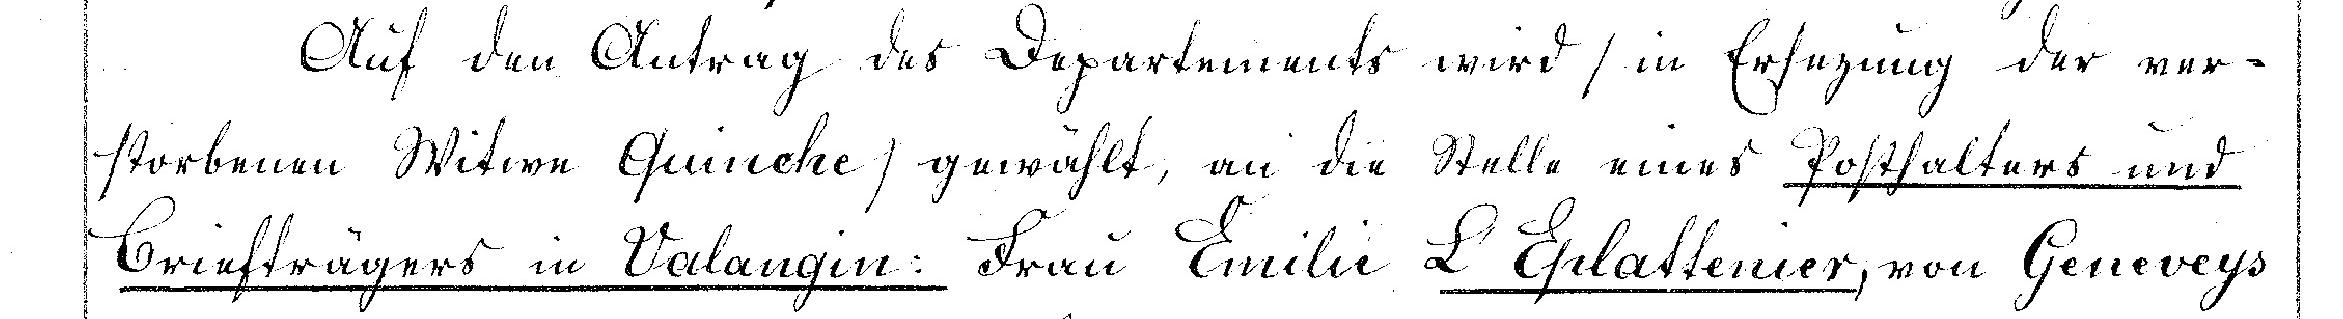 Auf den Antrag des Departements wird / in Ersezung der ver-
storbenen Witwe Quinche / gewählt, an die Stelle eines Posthalters und
Briefträgers in Valangin: Frau Emilie L'Eplattenier, von Geneveys